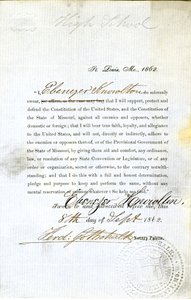 High School
St. Louis, Mo., 1862.
I, Ebenezer Knowlton do solemnly
swear, (or affirm, as the case may be) that I will support, protect and
defend the Constitution of the United States, and the Constitution of the
State of Missouri, against all enemies and opposers, whether
domestic or foreign; that I will bear true faith, loyalty, and allegiance
to the United States, and will not, directly or indirectly, adhere to
the enemies or opposers thereof, or of the Provisional Government of
the State of Missouri, by giving them aid and comfort, any ordinance,
law, or resolution of any State Convention or Legislature, or of any
order or organization, secret or otherwise, to the contrary notwith-
standing; and that I do this with a full and honest determination,
pledge and purpose to keep and perform the same, without any
mental reservation or evasion whatever: So help me God.
Ebenezer Knowlton
Sworn to and subscribed before me, this
8th day of Sept 1862
Notary Public.